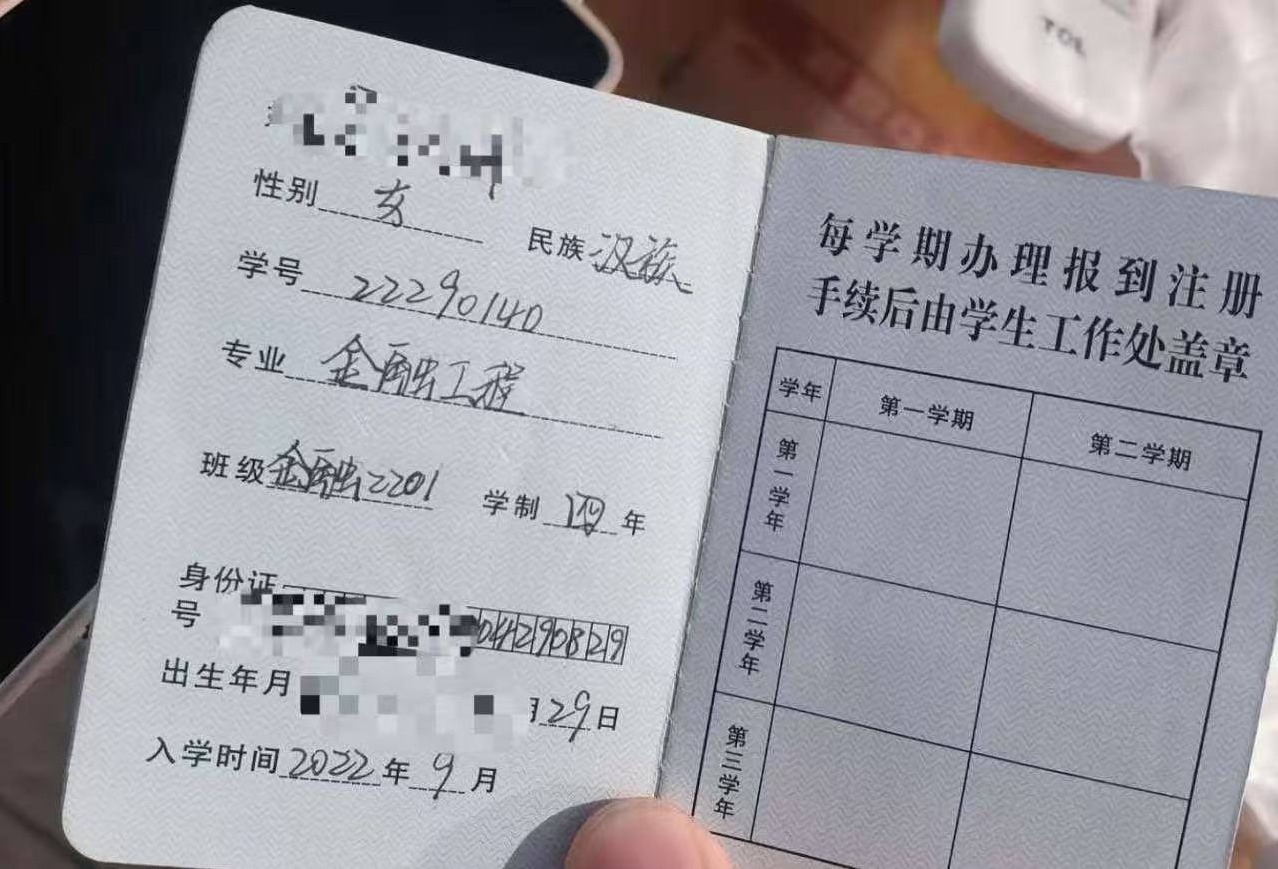 性别 女 民族 汉族
学号 22290140
专业 金融工程
班级 金融2201 学制 四 年
身份证
号
出生年月 29日
入学时间 2022 年 9 月
每学期办理报到注册
手续后由学生工作处盖章
学年 第一学期 第二学期
第一学年
第二学年
第三学年
TCL